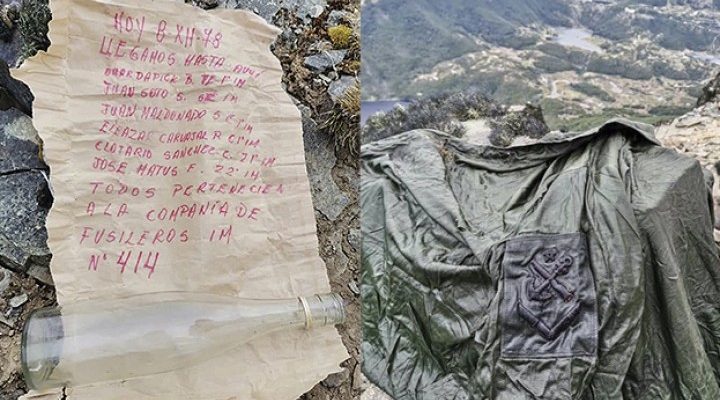 HOY 8 XII-78
LLEGAMOS HASTA AQUI
B. TE. IM
JUAN SOTO S. IM
JUAN MALDONADO S.
ELEAZAR CARVAJAL R. C1 IM
CLOTARIO SANCHEZ C. IM
JOSE MATUS F. 22 IM
TODOS PERTENECIEN
A LA COMPAÑIA DE
FUSILEROS IM
N° 414